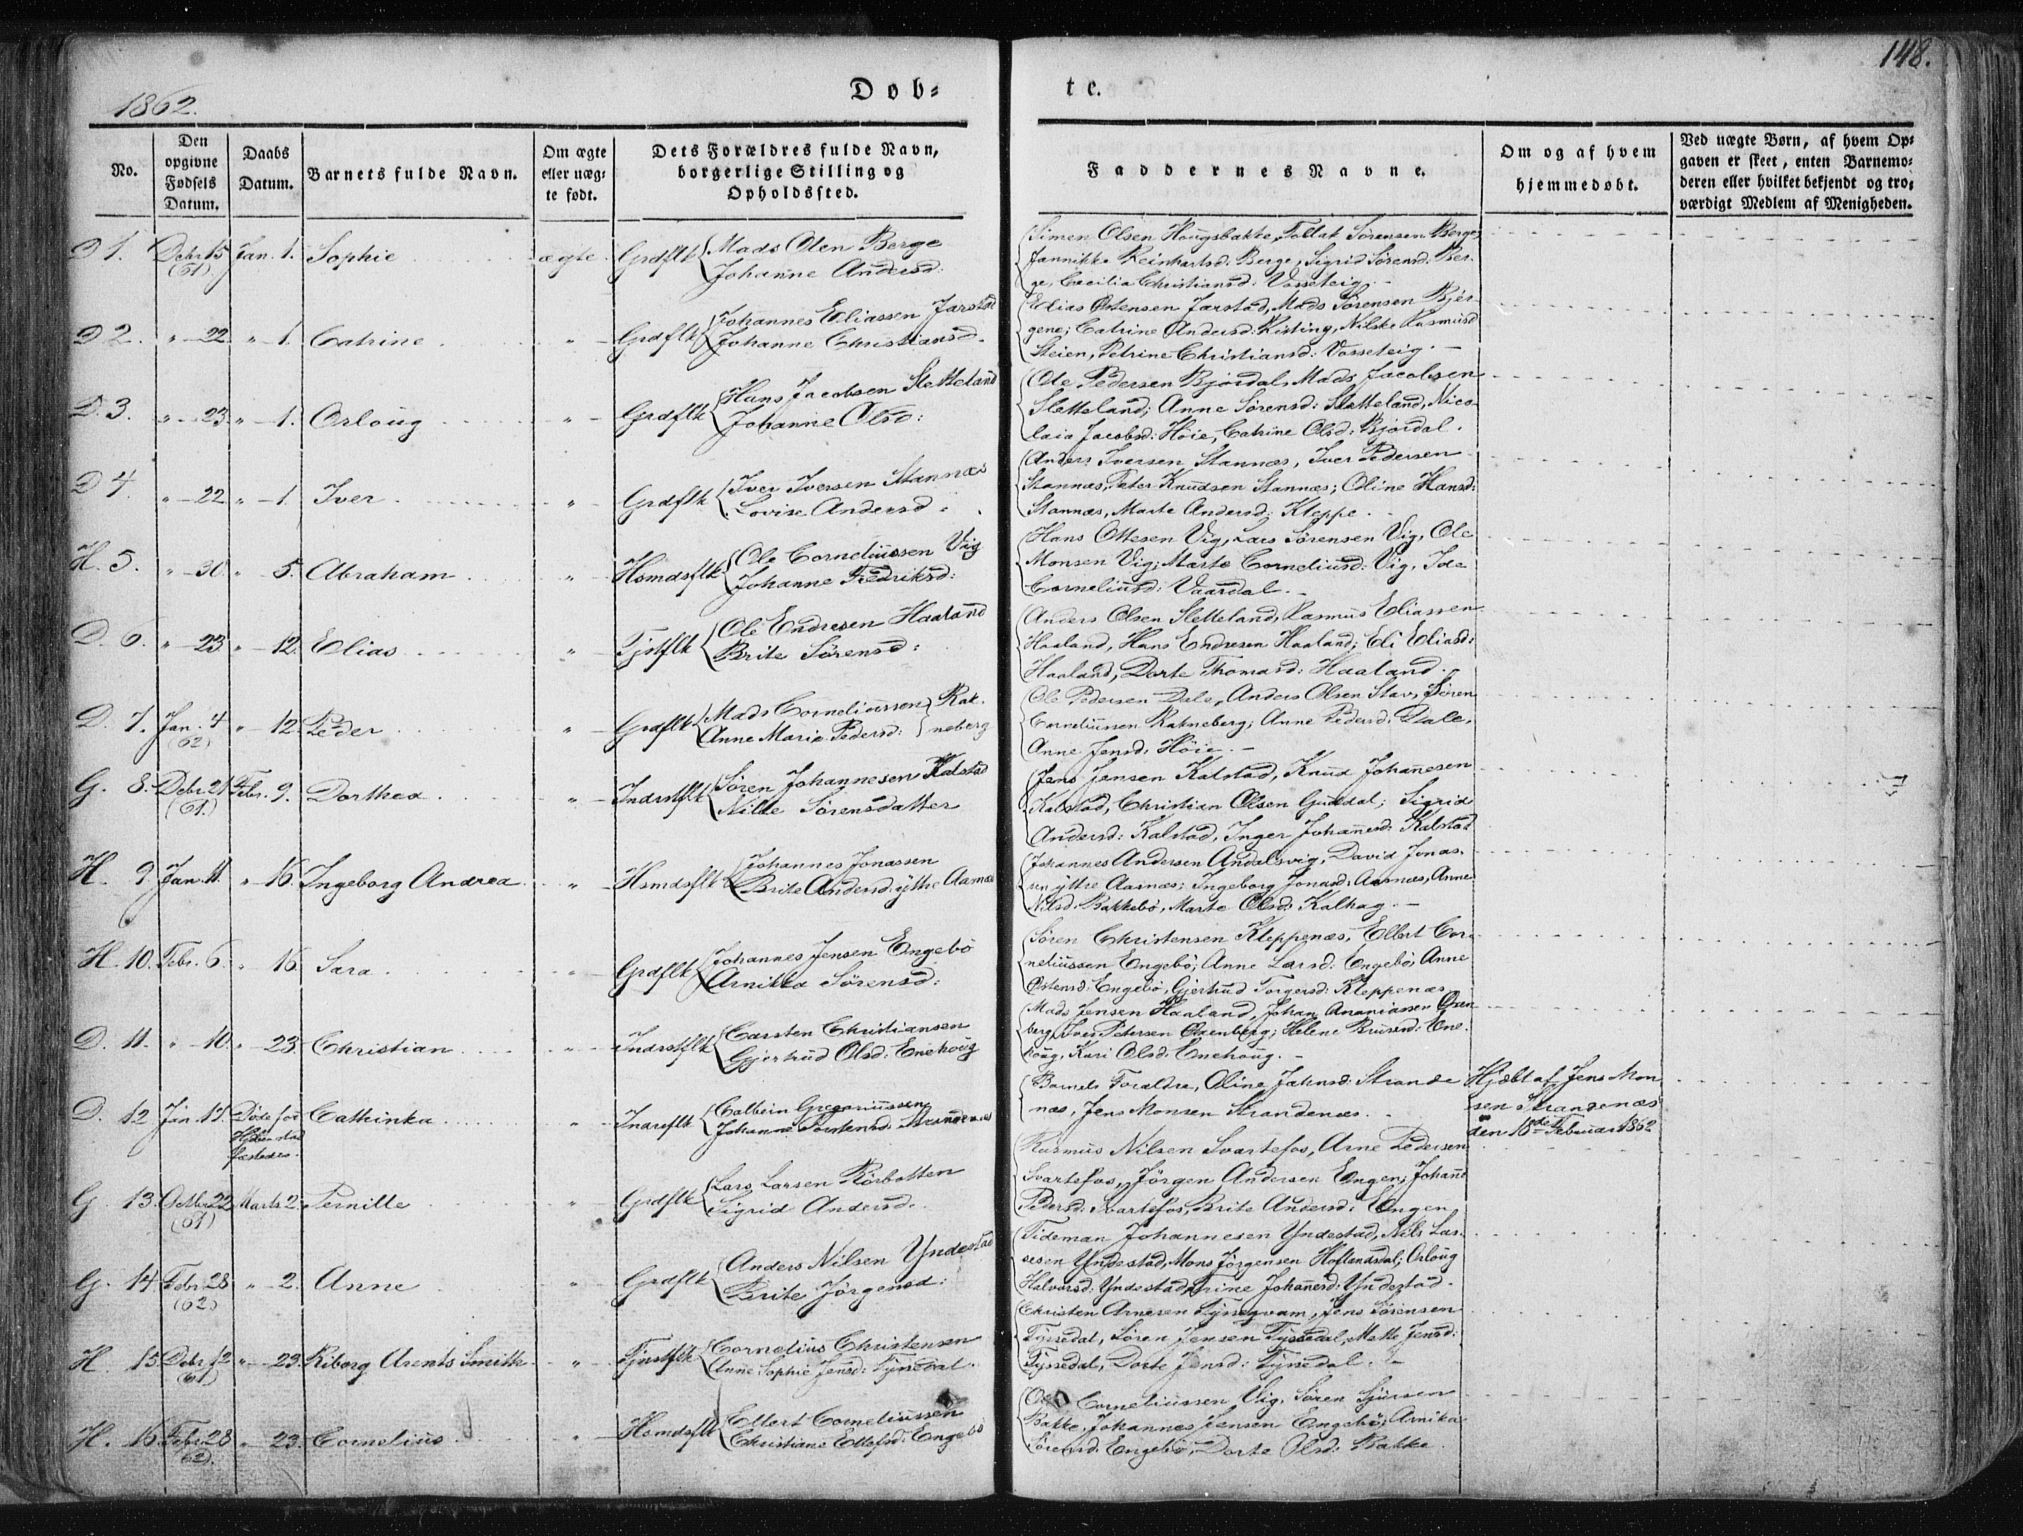 148.
1862.
Døb=
te.
No.
Den opgivne Fødsels Datum.
Daabs Datum.
Barnets fulde Navn.
Om ægte eller uægte født.
Dets Forældres fulde Navn, borgerlige Stilling og Opholdssted.
Faddernes Navne.
Om og af hvem hjemmedøbt.
Ved uægte Børn, af hvem Opgaven er skeet, enten Barnemoderen eller hvilket bekjendt og troværdigt Medlem af Menigheden.
D 1. Debr 15 (61). Jan. 1. Sophie ægte Grdflk Mads Olen Berge
Johanne Andersd:
Simen Olsen Hougsbakke, Tollak Sørensen Berge,
Jannikke Reinhartsd: Berge, Sigrid Sørensd: Ber-
ge, Cecilia Christiansd: Vasseteig. -
D 2. " - 22 " - 1. Catrine " Grdflk Johannes Eliassen Jarstad
Johanne Christiansd.
Elias Ottensen Jarstad, Mads Sørensen Bjer-
gene; Catrine Andersd: Kisting, Nilske Rasmusd
Steien, Petrine Christiansd: Vasseteig. -
D. 3. " - 23 " - 1. Orloug " Grdflk Hans Jacobsen Sletteland
Johanne Olsd:
Ole Pedersen Bjordal, Mads Jacobsen
Sletteland; Anne Sørensd: Sletteland, Nico-
laia Jacobsd: Høie, Catrine Olsd: Bjordal.
D 4. " - 22 " - 1. Iver " Grdflk Iver Iversen Stannæs
Lovise Andersd:
Anders Iversen Stannæs, Iver Pedersen
Stannæs, Peter Knudsen Stannæs; Oline Hansd:
Stannæs, Marte Andersd: Kleppe.
H. 5. " - 30 " - 5. Abraham " Hsmdsflk Ole Corneliussen Vig
Johanne Fredriksd:
Hans Ottesen Vig, Lars Sørensen Vig, Ole
Monsen Vig; Marte Corneliusd: Vig, Ide
Corneliusd: Vaardal. -
D. 6. " - 23 " - 12. Elias " Tjstflk Ole Endresen Haaland
Brite Sørensd:
Anders Olsen Sletteland, Rasmus Eliassen
Haaland, Hans Endresen Haaland; Eli Eliasd:
Haaland, Dorte Thomasd: Haaland.
D. 7. Jan. 4 (62) " - 12. Peder " Grdflk Mads Corneliussen Rak-
Anne Marie Pedersd: neberg
Ole Pedersen Dale, Anders Olsen Stav, Søren
Corneliussen Rakneberg; Anne Pedersd: Dale,
Anne Jensd: Høie. -
G. 8. Debr 21 (61.) Febr. 9. Dorthea " Indrstflk Søren Johannesen Kalstad
Nille Sørensdatter
Jens Jensen Kalstad, Knud Johañesen
Kalstad, Christian Olsen Guddal; Sigrid
Andersd: Kalstad, Inger Johañesd: Kalstad
H. 9. Jan. 11. " - 16. Ingeborg Andrea " Hsmdsflk Johannes Jonassen
Brite Andersd: yttre Aarnæs
Johannes Andersen Andalsvig, David Jonas-
sen yttre Aarnæs; Ingeborg Jonasd: Aarnæs, Anne
Nilsd: Bakkebø, Marte Olsd: Kalhag. -
H. 10. Febr. 6. " 16 Sara " Grdflk Johannes Jensen Engebö
Arnikka Sørensd:
Søren Christensen Kleppenæs, Ellert Cor-
neliussen Engebø; Anne Larsd: Engebø, Anne
Ostensd: Engebø, Gjertrud Torgersd: Kleppenæs.
D. 11. " - 10. " - 23. Christian " Indrstflk Carsten Christiansen
Gjertrud Olsd: Enehoug
Mads Jensen Haaland, Johan Ananiassen Oxen
berg, Iver Petersen Oxenberg; Helene Bruusd: Ene-
houg, Kari Olsd: Enehoug. -
D. 12 Jan. 17. Døde før Cathinka " Indreflk Colbein Gregoriussen
Johanne Torstensd: Strandenæs
Barnets Forældre, Oline Jahnsd: Strande
næs, Jens Monsen Strandenæs. -
Hjdbt af Jens Mon
sen Strandenæs
den 18de Februar 1862
G. 13. Octbr 22 (61) Marts 2. Pernille " Grdflk Lars Larsen Rörbotten
Sigrid Andersd.
Rasmus Nilsen Svartefos, Arne Pedersen
Svartefos, Jørgen Andersen Engen; Johañe
Pedersd: Svartefos, Brite Andersd: Engen
G. 14. Febr. 28 (62) " - 2. Anne " Grdflk Anders Nilsen Yndestad
Brite Jørgensd:
Tideman Johannesen Yndestad, Nils Las-
sesen Yndestad, Mons Jørgensen Hoflandsdal; Orloug
Halvorsd: Yndestad, Trine Johañesd: Yndestad.
H. 15. Debr 12 (61) " - 23. Riborg Arents Smith " Tjnstflk Cornelius Christensen
Anne Sophie Jensd: Tyssedal.
Christen Arnesen Tyssegvam, Jens Sørensen
Tyssedal, Søren Jensen Tyssedal, Mette Jensd:
Tyssedal, Dorte Jensd: Tyssedal. -
H. 16 Febr. 28 (62). " - 23. Cornelius " Hsmdsflk Ellert Corneliussen
Christiane Ellefsd: Engebö
Ole Corneliussen Vig, Søren Sjursen
Bakke, Johannes Jensen Engebø; Arnika
Sørensd: Engebø, Dorte Olsd: Bakke.